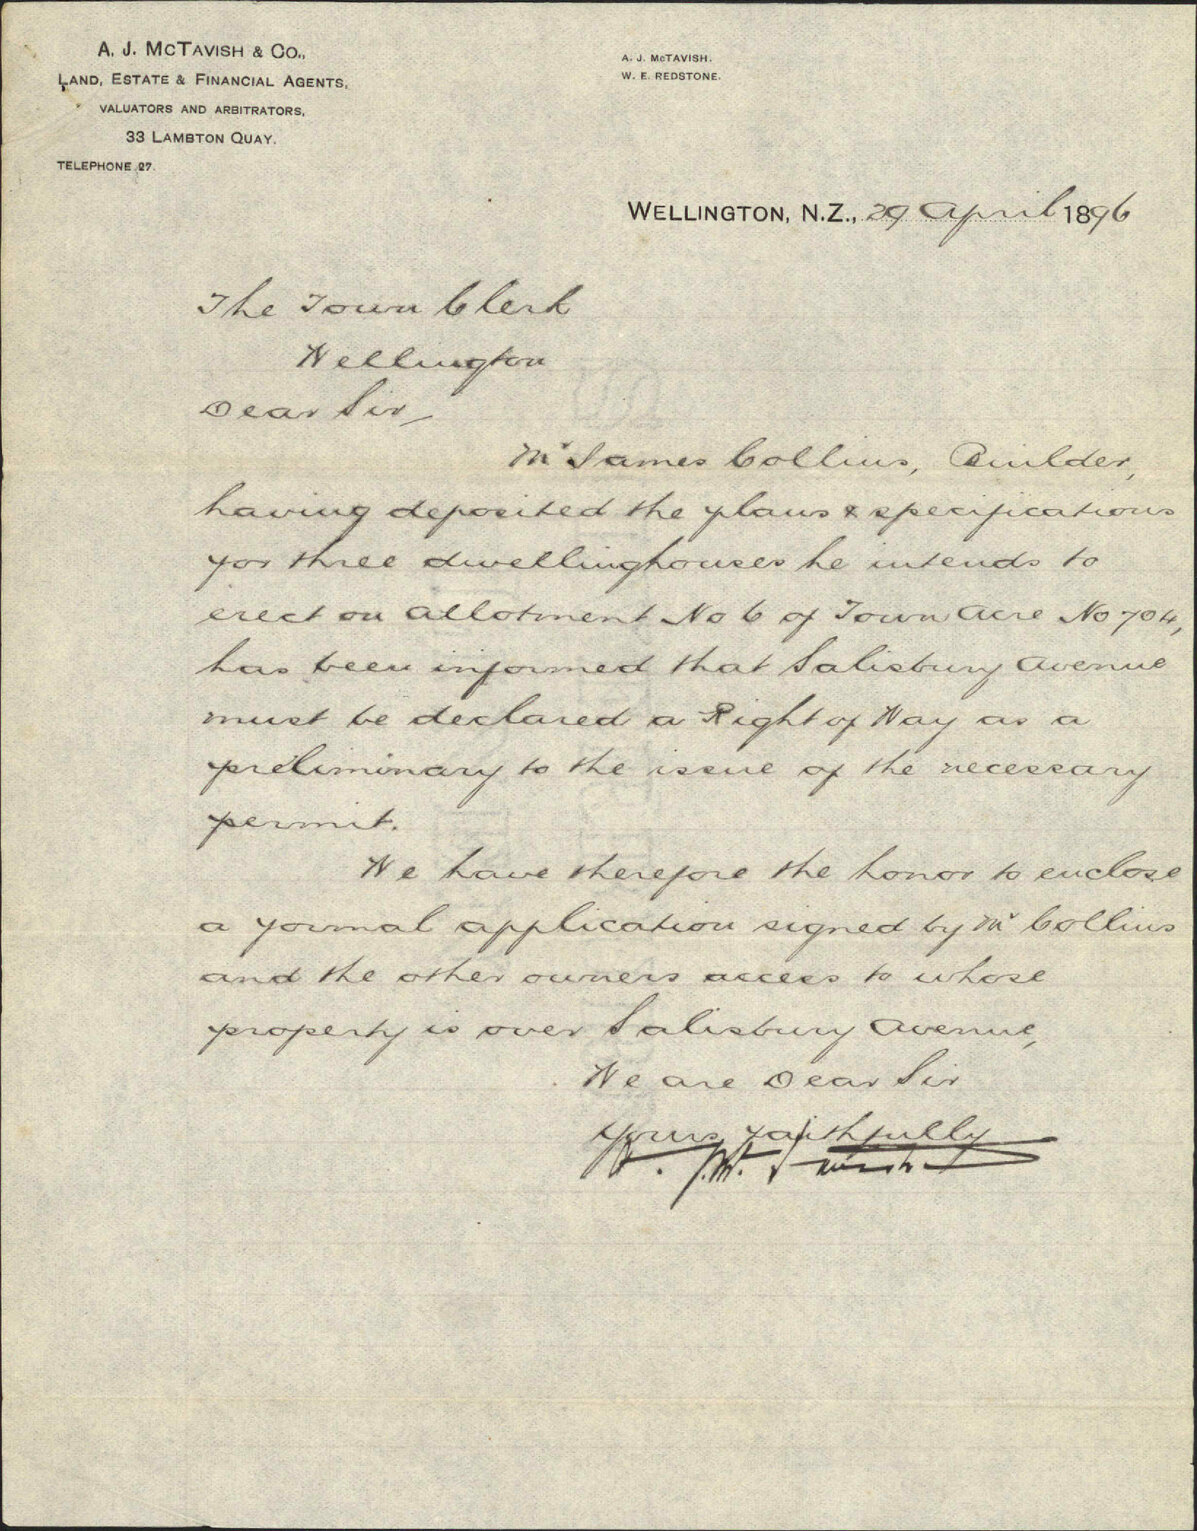 A. J. McTavish & Co.,
Land, Estate & Financial Agents,
VALUATORS AND ARBITRATORS,
33 Lambton Quay.
TELEPHONE 27.
A. J. McTAVISH.
W. E. REDSTONE.
Wellington, N.Z., 29 April 1896
The Town Clerk
Wellington
Dear Sir
Mr James Collins, Builder,
having deposited the plans & specifications
for three dwellinghouses he intends to
erect on allotment No 6 of Town Acre No 704,
has been informed that Salisbury Avenue
must be declared a Right of Way as a
preliminary to the issue of the necessary
permit.
We have therefore the honor to enclose
a formal application signed by Mr Collins
and the other owners access to whose
property is over Salisbury Avenue,
We are Dear Sir
Yours faithfully